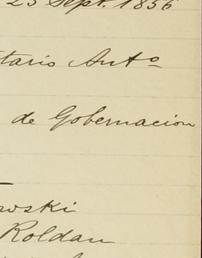 25 Sept. 1856
tario Anto
de Gobernacion
wski
Roldan